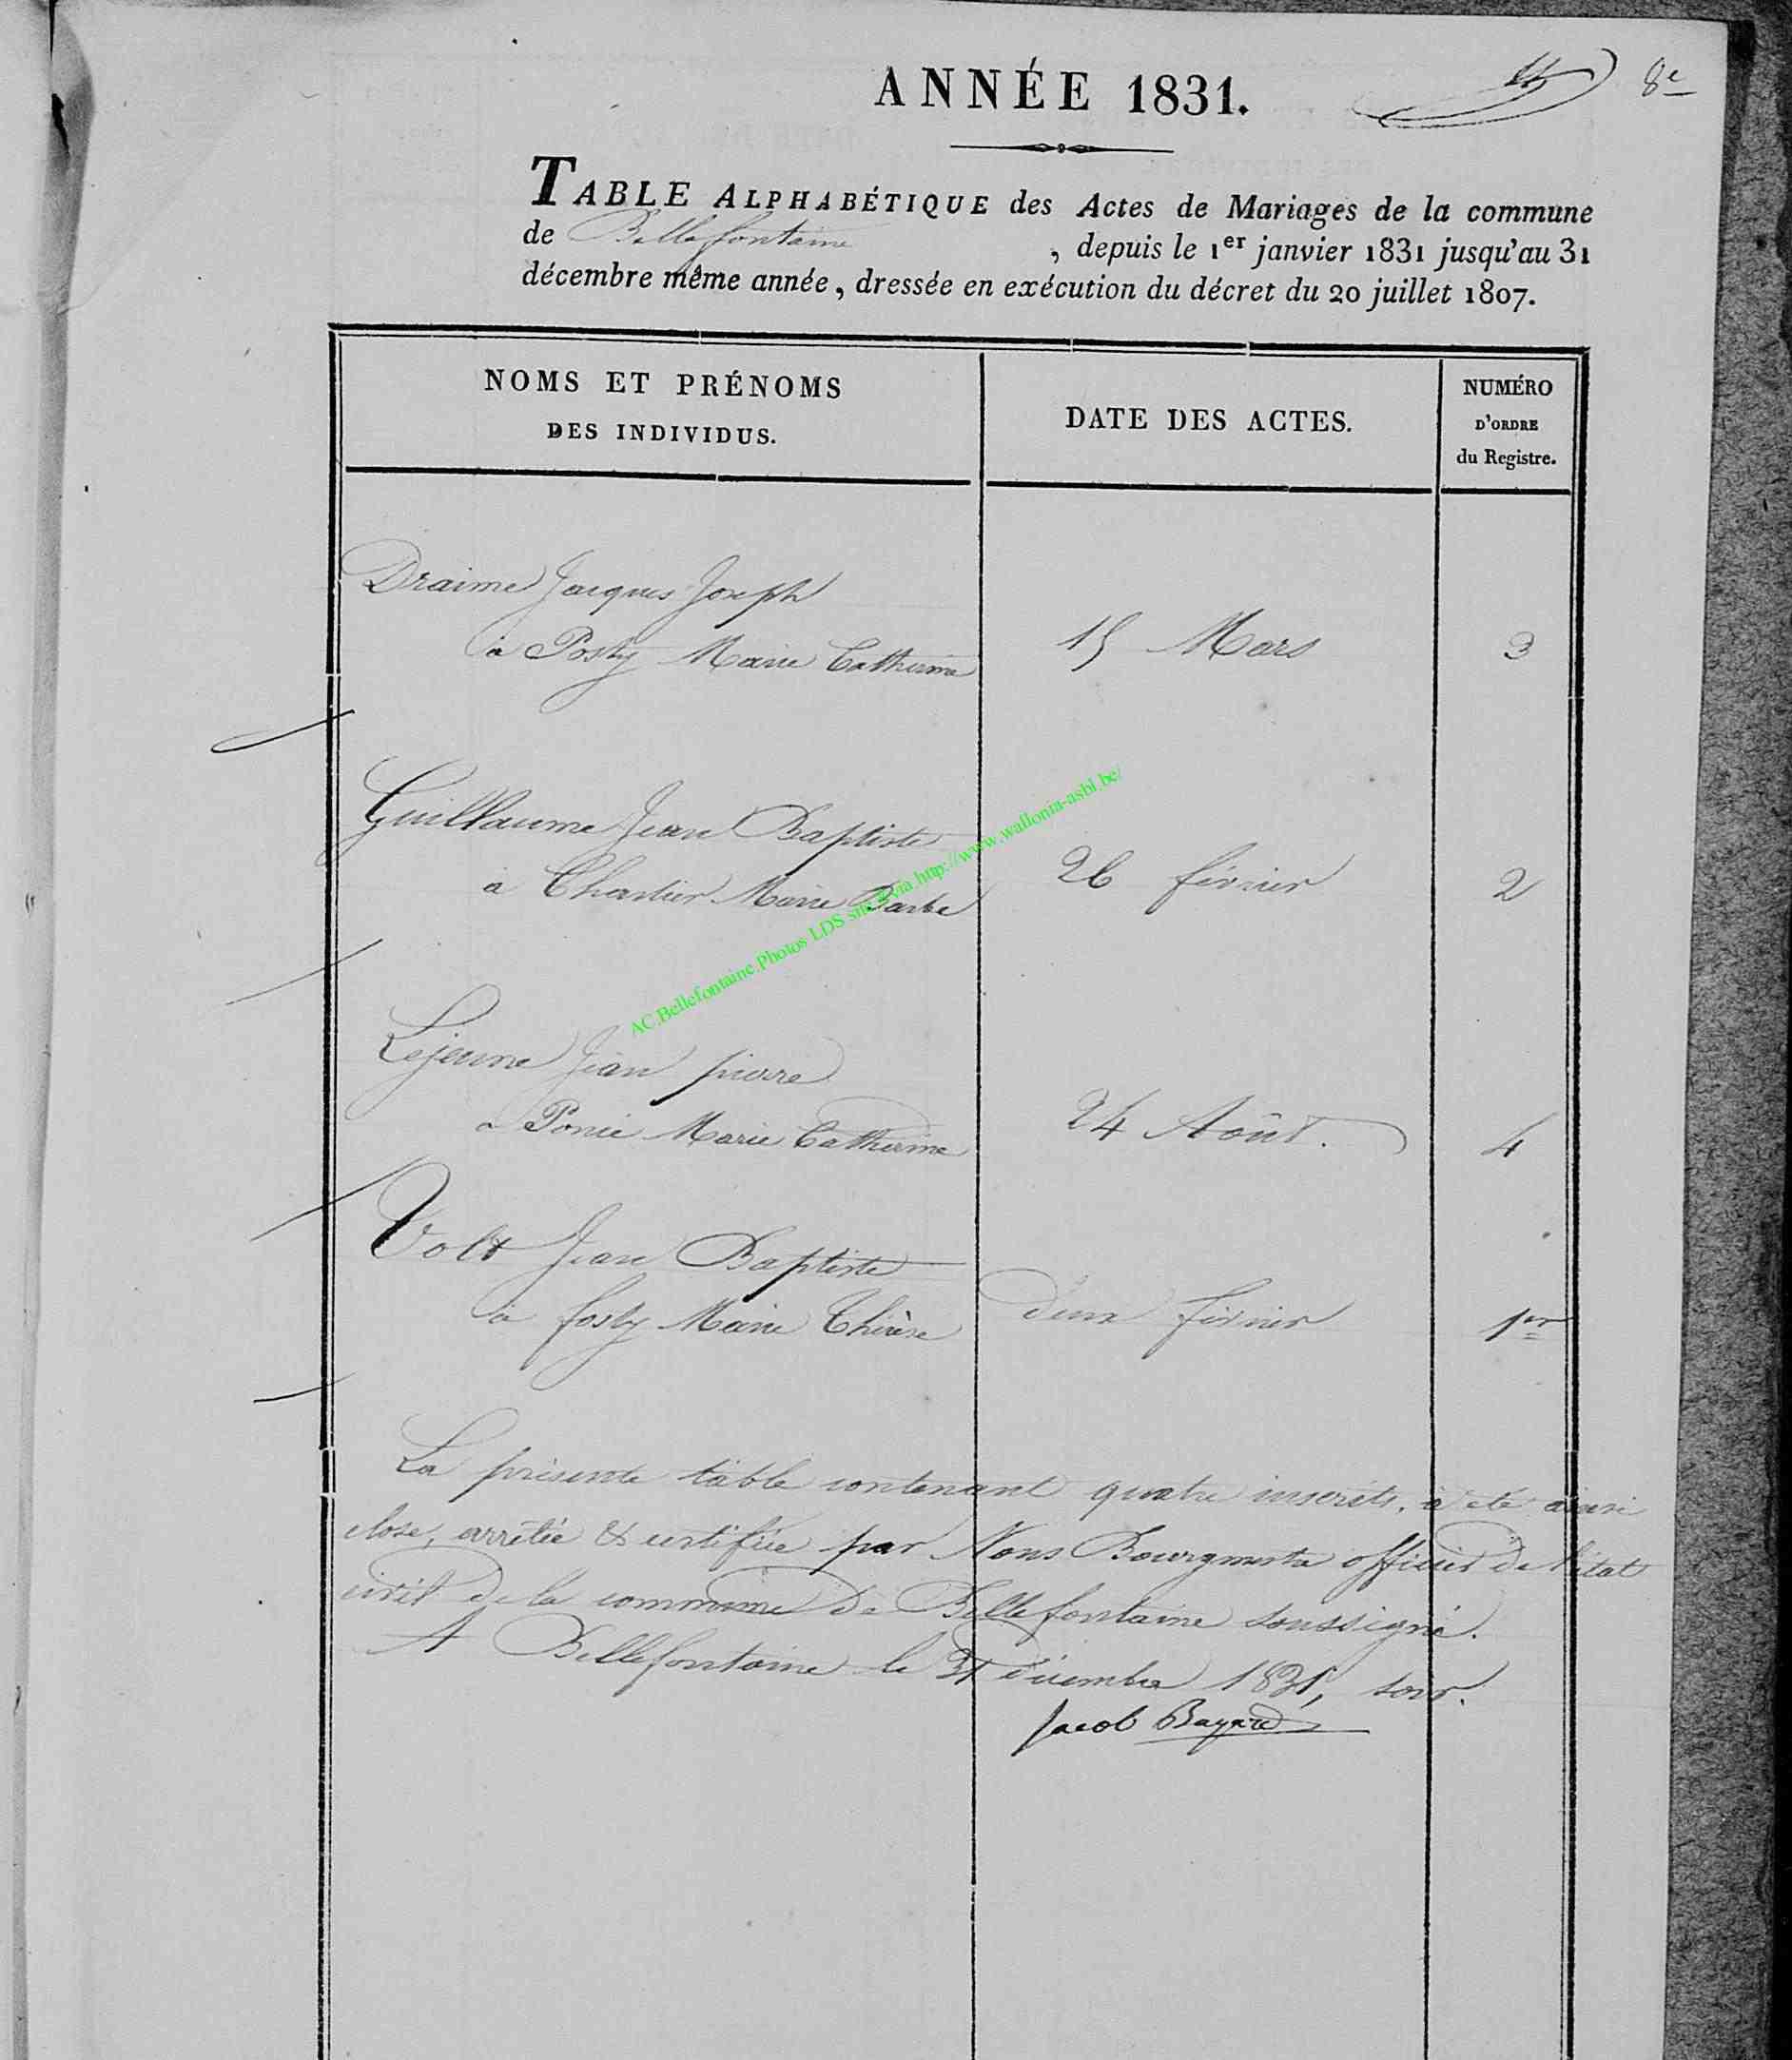 ANNÉE 1831.
8e
TABLE ALPHABÉTIQUE des Actes de Mariages de la commune
de Bellefontaine, depuis le 1er janvier 1831 jusqu'au 31
décembre même année, dressée en exécution du décret du 20 juillet 1807.
NOMS ET PRÉNOMS
DES INDIVIDUS.
DATE DES ACTES.
NUMÉRO
D'ORDRE
du Registre.
Draime Jacques Joseph
à Posty Marie Catherine 15 Mars 3
Guillaume Jean Baptiste
à Chartier Marie Barbe 26 février 2
Lejeune Jean pierre
à Poncé Marie Catherine 24 Août. 4
Volt Jean Baptiste
à fosty Marie Thérèse deux février 1er
La présente table contenant quatre inscrits, a été ainsi
close, arrêtée & certifiée par Nous Bourgmestre officier de l'état
civil de la commune de Bellefontaine soussigné.
A Bellefontaine le 31 décembre 1831, soir.
Jacob Bayard
AC.Bellefontaine.Photos LDS site via http://www.wallonia-asbl.be/